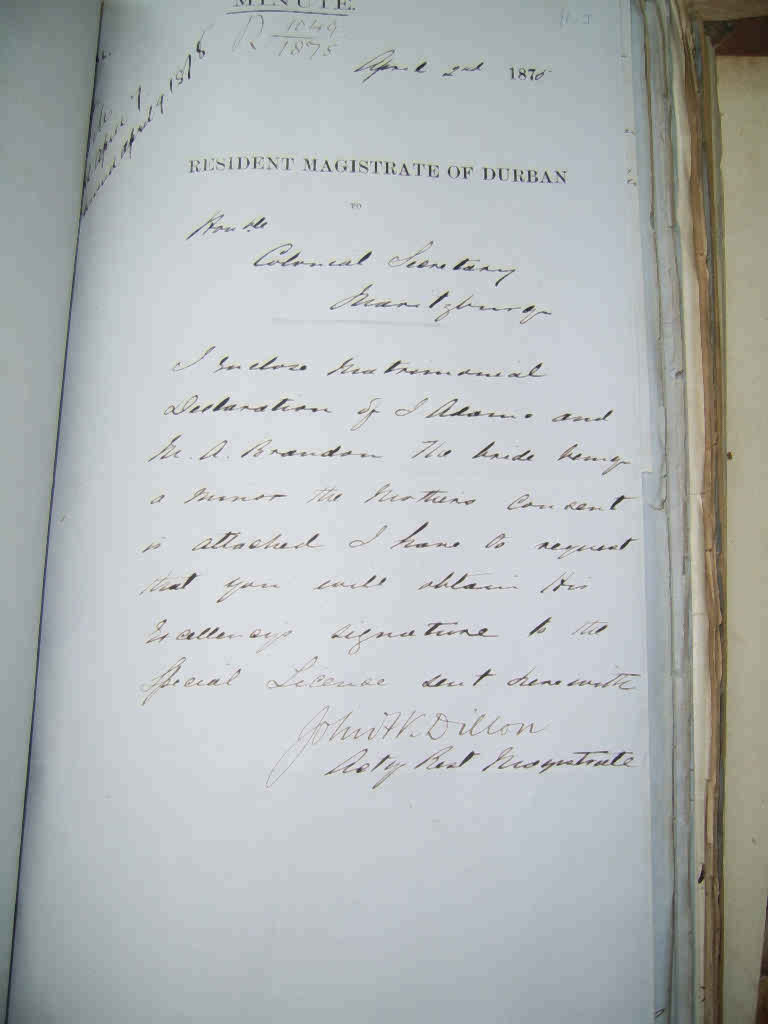 MINUTE.
R 1049
1875
April 2nd 1875
April 9 1878
RESIDENT MAGISTRATE OF DURBAN
TO
Honble
Colonial Secretary
Maritzburg
I enclose Matrimonial
Declaration of I Adams and
M. A. Brandon the bride being
a minor the Mothers consent
is attached I have to request
that you will obtain His
Excellency's signature to the
Special License sent herewith
John W. Dillon
Actg Rest Magistrate